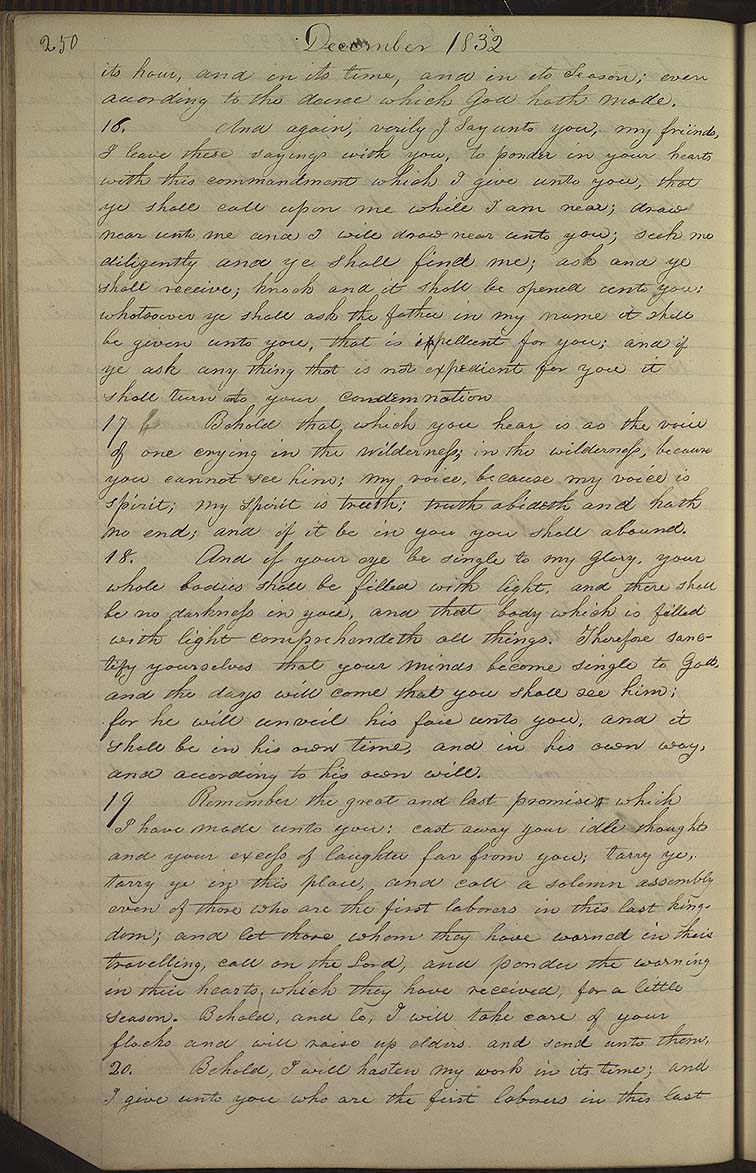 250 December 1832
its hour, and in its time, and in its season; even
according to the decree which God hath made.
16. And again, verily I say unto you, my friends,
I leave these sayings with you, to ponder in your hearts
with this commandment which I give unto you, that
ye shall call upon me while I am near; draw
near unto me and I will draw near unto you; seek me
diligently and ye shall find me; ask and ye
shall receive; knock and it shall be opened unto you;
whatsoever ye shall ask the father in my name it shall
be given unto you, that is for you; and if
ye ask any thing that is not expedient for you it
shall turn unto your condemnation
17 Behold that which you hear is as the voice
of one crying in the wilderness; in the wilderness, because
you cannot see him; my voice, because my voice is
spirit; my spirit is truth; truth abideth and hath
no end; and if it be in you you shall abound.
18. And if your eye be single to my glory, your
whole bodies shall be filled with light, and there shall
be no darkness in you, and that body which is filled
with light comprehendeth all things. Therefore sanc-
tify yourselves that your minds become single to God,
and the days will come that you shall see him;
for he will unveil his face unto you, and it
shall be in his own time, and in his own way,
and according to his own will.
19 Remember the great and last promise which
I have made unto you: cast away your idle thoughts
and your excess of laughter far from you; tarry ye,
tarry ye in this place, and call a solemn assembly
even of those who are the first laborers in this last king-
dom; and let those whom they have warned in their
travelling, call on the Lord, and ponder the warning
in their hearts, which they have received, for a little
season. Behold, and lo, I will take care of your
flocks and will raise up elders and send unto them.
20. Behold, I will hasten my work in its time; and
I give unto you who are the first laborers in this last